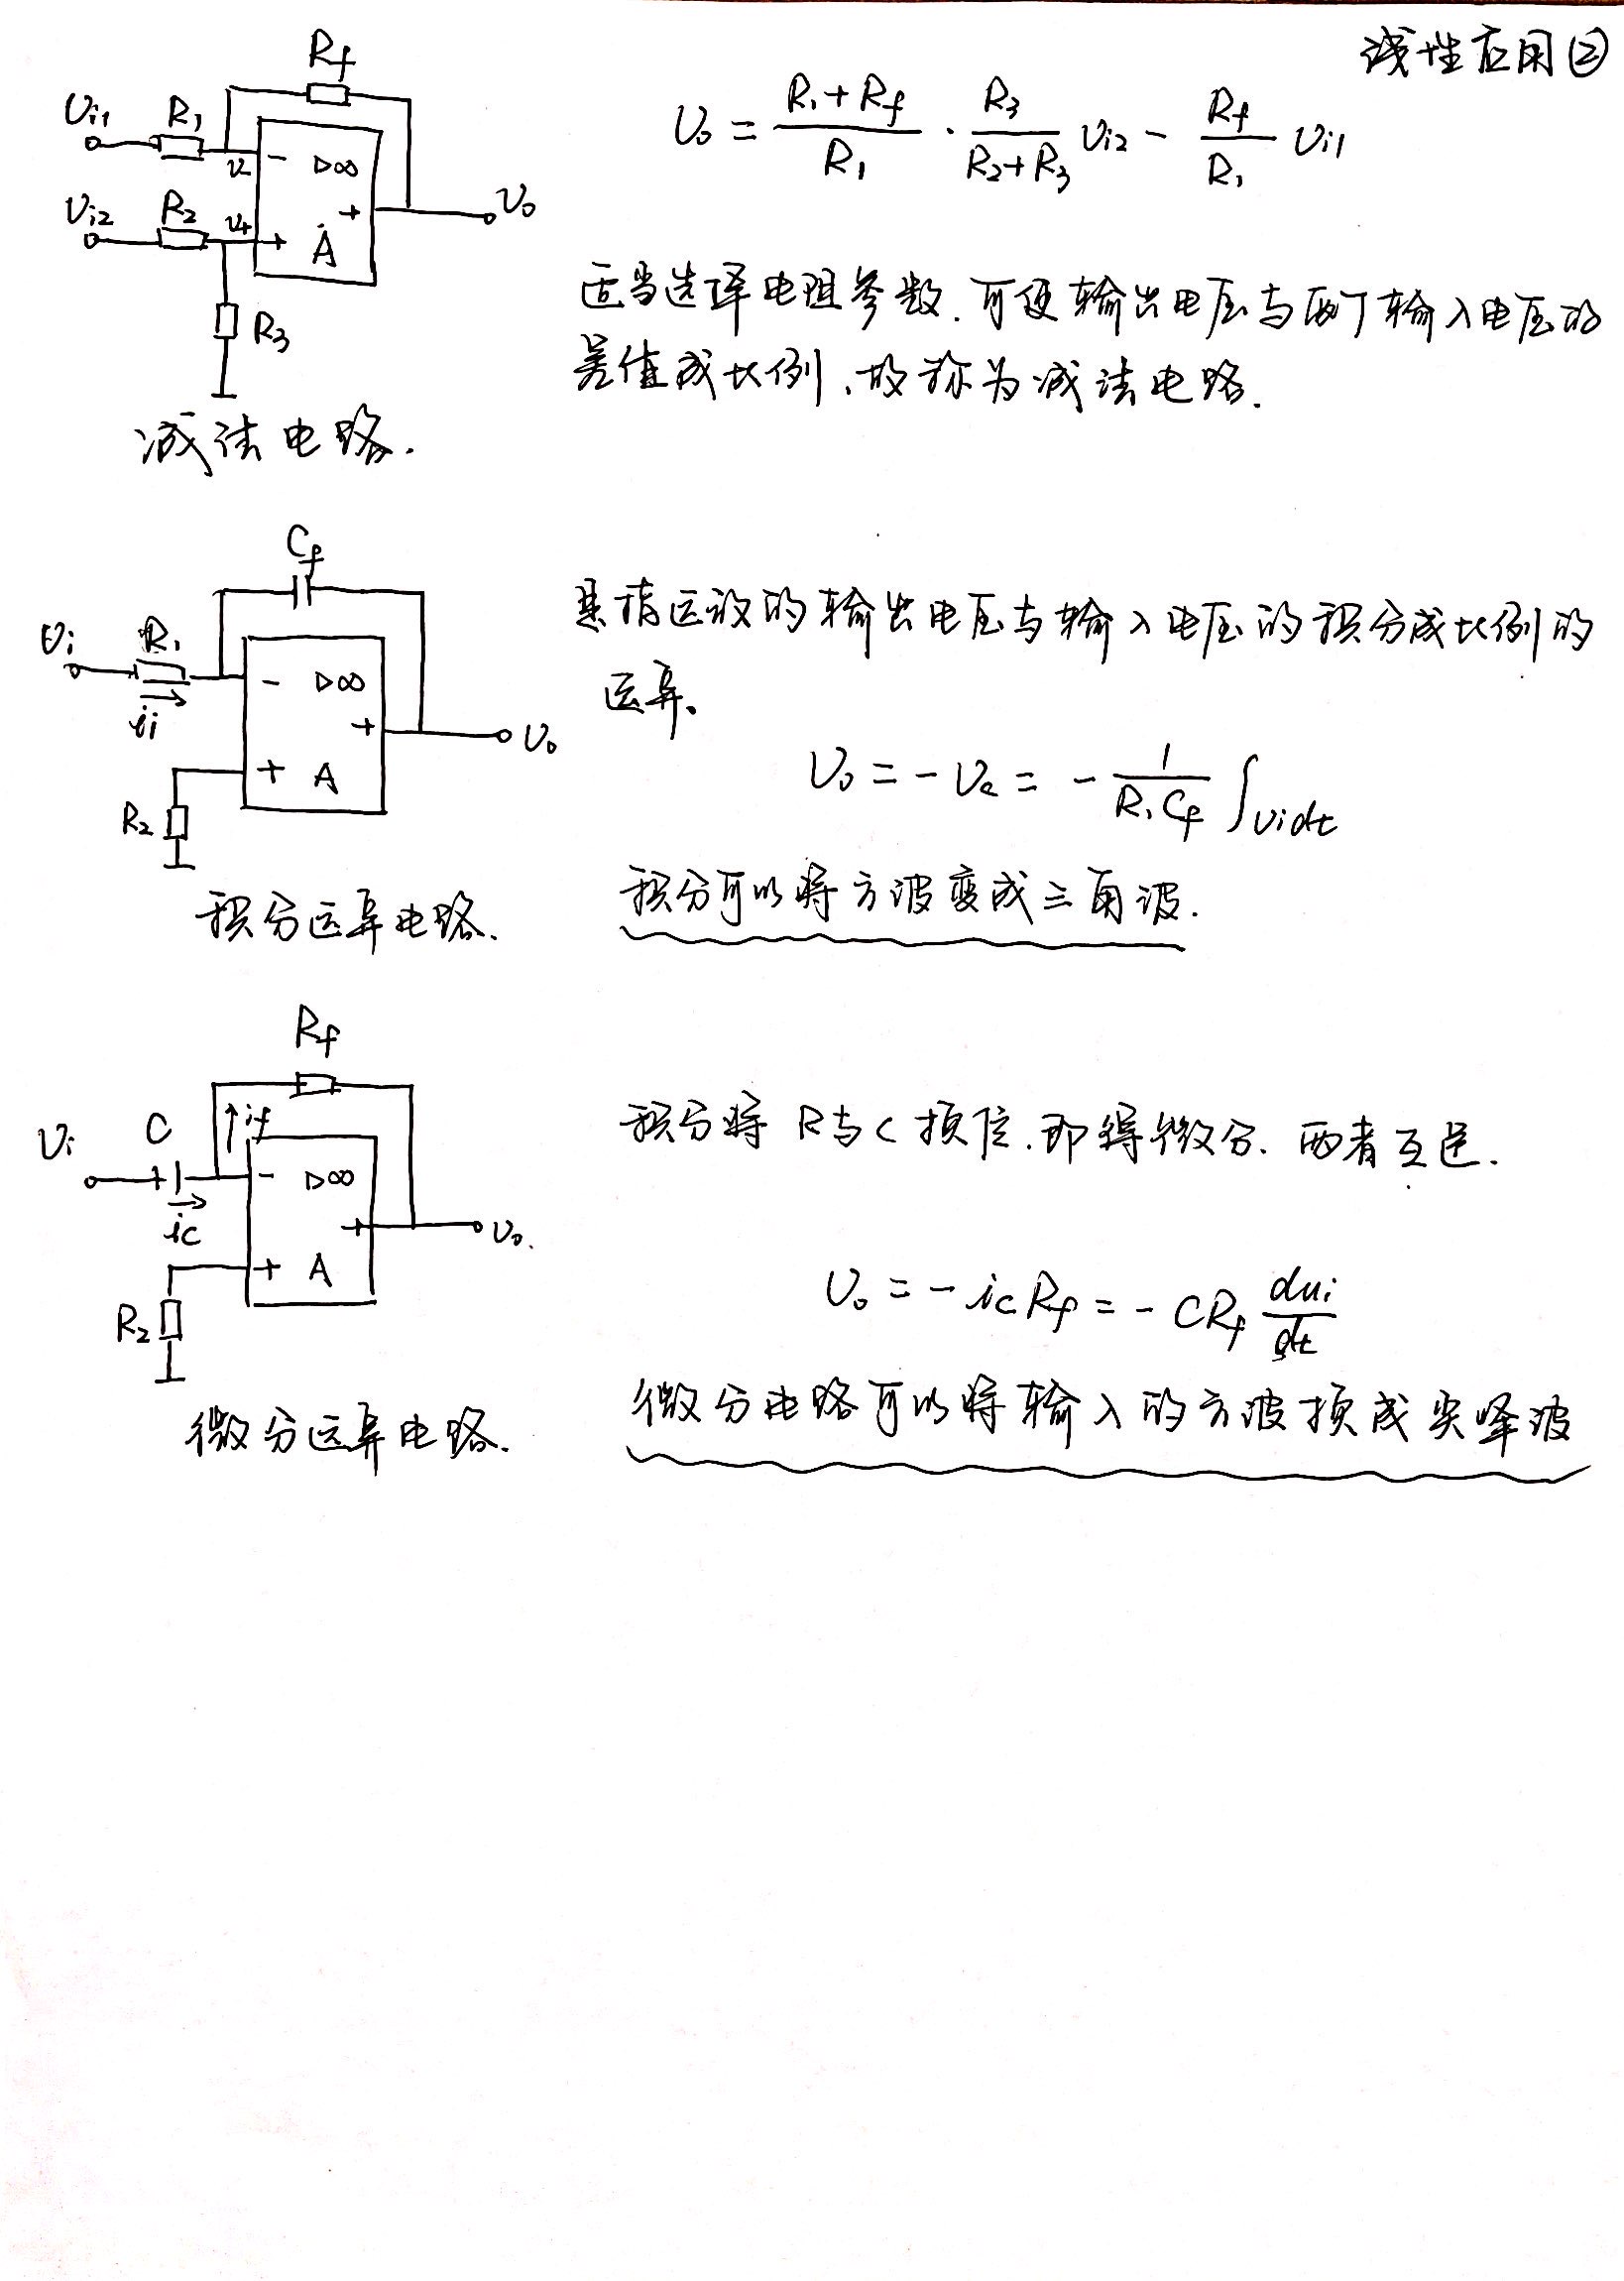 线性应用②
Rf
Ui1 R1
U- - ▷∞
Ui2 R2 U+ + A + Uo
R3
减法电路.
Uo = (R1+Rf)/R1 · R3/(R2+R3) Ui2 - Rf/R1 Ui1
适当选择电阻参数.可使输出电压与两个输入电压的
差值成比例、故称为减法电路.
Cf
Ui R1
- ▷∞
ii + Uo
+ A
R2
积分运算电路.
是指运放的输出电压与输入电压的积分成比例的
运算、
Uo = -Uc = - 1/(R1Cf) ∫Uidt
积分可以将方波变成三角波.
Rf
Ui C if
- ▷∞
ic + Uo.
+ A
R2
微分运算电路.
积分将 R与C 换位.即得微分. 两者互逆.
Uo = -icRf = -CRf dui/dt
微分电路可以将输入的方波换成尖峰波